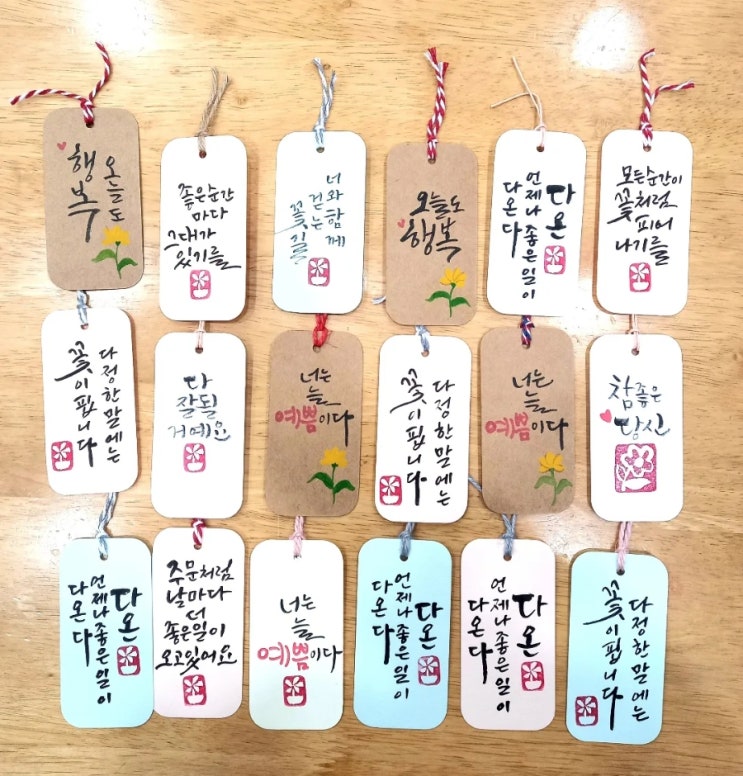 오늘도
행복
좋은순간
마다
그대가
있기를
너와함께
걷는
꽃길
오늘도
행복
다온
언제나좋은일이
다온다
모든순간이
꽃처럼
피어
나기를
다정한말에는
꽃이핍니다
다
잘될
거예요
너는
늘
예쁨이다
다정한말에는
꽃이핍니다
너는
늘
예쁨이다
참좋은
당신
다온
언제나좋은일이
다온다
주문처럼
날마다
더
좋은일이
오고있어요
너는
늘
예쁨이다
다온
언제나좋은일이
다온다
다온
언제나좋은일이
다온다
다정한말에는
꽃이핍니다